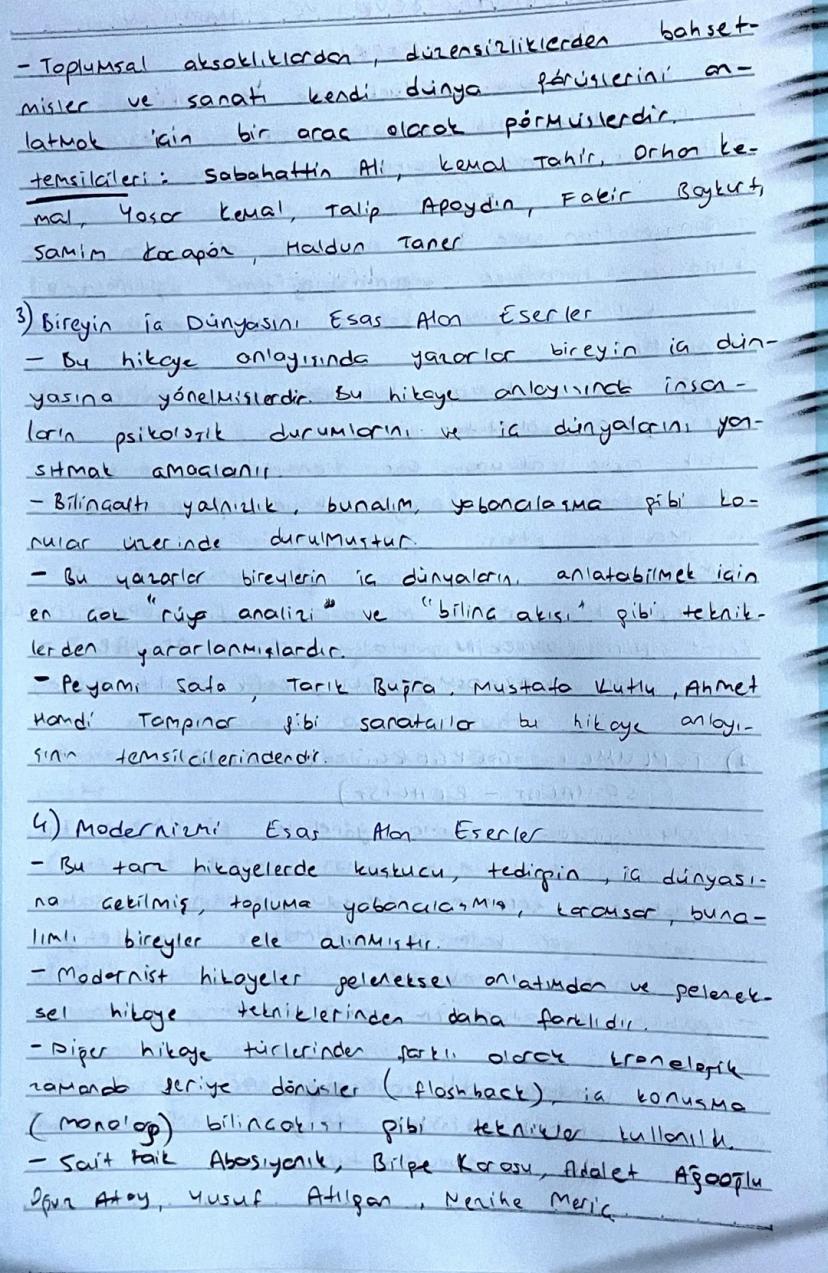 - Toplumsal aksaklıklardan, düzensizliklerden bahset-
mişler ve sanatı kendi dünya görüşlerini an-
latmak için bir araç olarak görmüşlerdir.
temsilcileri: Sabahattin Ali, Kemal Tahir, Orhan Ke-
mal, Yaşar Kemal, Talip Apaydın, Fakir Baykurt,
Samim Kocagöz, Haldun Taner
3) Bireyin İç Dünyasını Esas Alan Eserler
- Bu hikaye anlayışında yazarlar bireyin iç dün-
yasına yönelmişlerdir. Bu hikaye anlayışında insan-
ların psikolojik durumlarını ve iç dünyalarını yan-
sıtmak amaçlanır.
- Bilinçaltı yalnızlık, bunalım, yabancılaşma gibi ko-
nular üzerinde durulmuştur.
- Bu yazarlar bireylerin iç dünyaların anlatabilmek için
en çok "rüya analizi" ve "bilinç akışı" gibi teknik-
lerden yararlanmışlardır.
- Peyami Safa, Tarık Buğra, Mustafa Kutlu, Ahmet
Hamdi Tampınar gibi sanatçılar bu hikaye anlayı-
şının temsilcilerindendir.
4) Modernizmi Esas Alan Eserler
- Bu tarz hikayelerde kuşkucu, tedirgin, iç dünyası-
na çekilmiş, topluma yabancılaşmış, karamsar, buna-
lımlı bireyler ele alınmıştır.
- Modernist hikayeler geleneksel anlatımdan ve gelenek-
sel hikaye tekniklerinden daha farklıdır.
- Diğer hikaye türlerinden farklı olarak kronolojik
zamanda geriye dönüşler (flashback), iç konuşma
(monolog) bilinçakışı gibi teknikler kullanılır.
- Sait Faik Abasıyanık, Bilge Karasu, Adalet Ağaoğlu
Oğuz Atay, Yusuf Atılgan, Nezihe Meriç